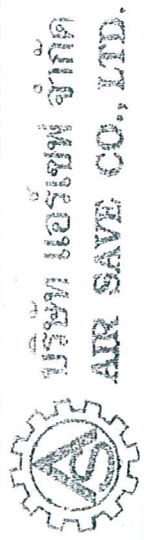 บริษัท แอร์เซฟ จำกัด
AIR SAVE CO., LTD.
AS